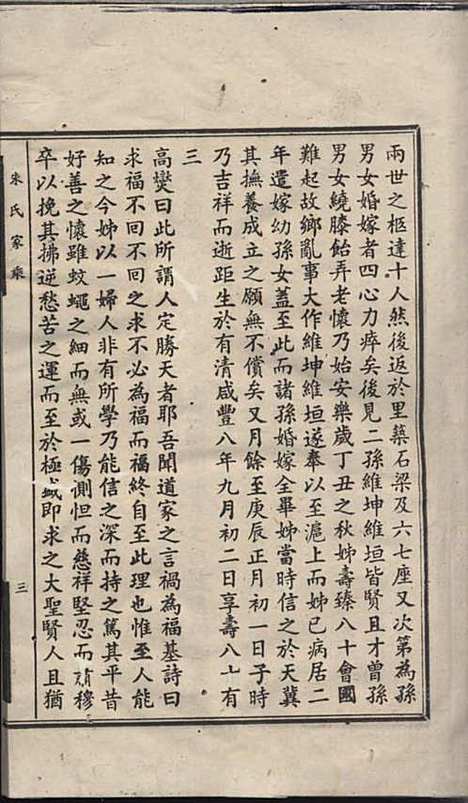 兩世之柩達十人然後返於里築石梁及六七座又次第為孫
男女婚嫁者四心力瘁矣後見二孫維坤維垣皆賢且才曾孫
男女繞膝飴弄老懷乃始安樂歲丁丑之秋姊壽臻八十會國
難起故鄉亂事大作維坤維垣遂奉以至滬上而姊已病居二
年遣嫁幼孫女蓋至此而諸孫婚嫁全畢姊當時信之於天冀
其撫養成立之願無不償矣又月餘至庚辰正月初一日子時
乃吉祥而逝距生於有清咸豐八年九月初二日享壽八十有
三
高爕曰此所謂人定勝天者耶吾聞道家之言禍為福基詩曰
求福不回不回之求不必為福而福終自至此理也惟至人能
知之今姊以一婦人非有所學乃能信之深而持之篤其平昔
好善之懷雖蚊蠅之細而無或一傷惻怛而慈祥堅忍而靖穆
卒以挽其拂逆愁苦之運而至於極盛即求之大聖賢人且猶
朱氏家乘
三